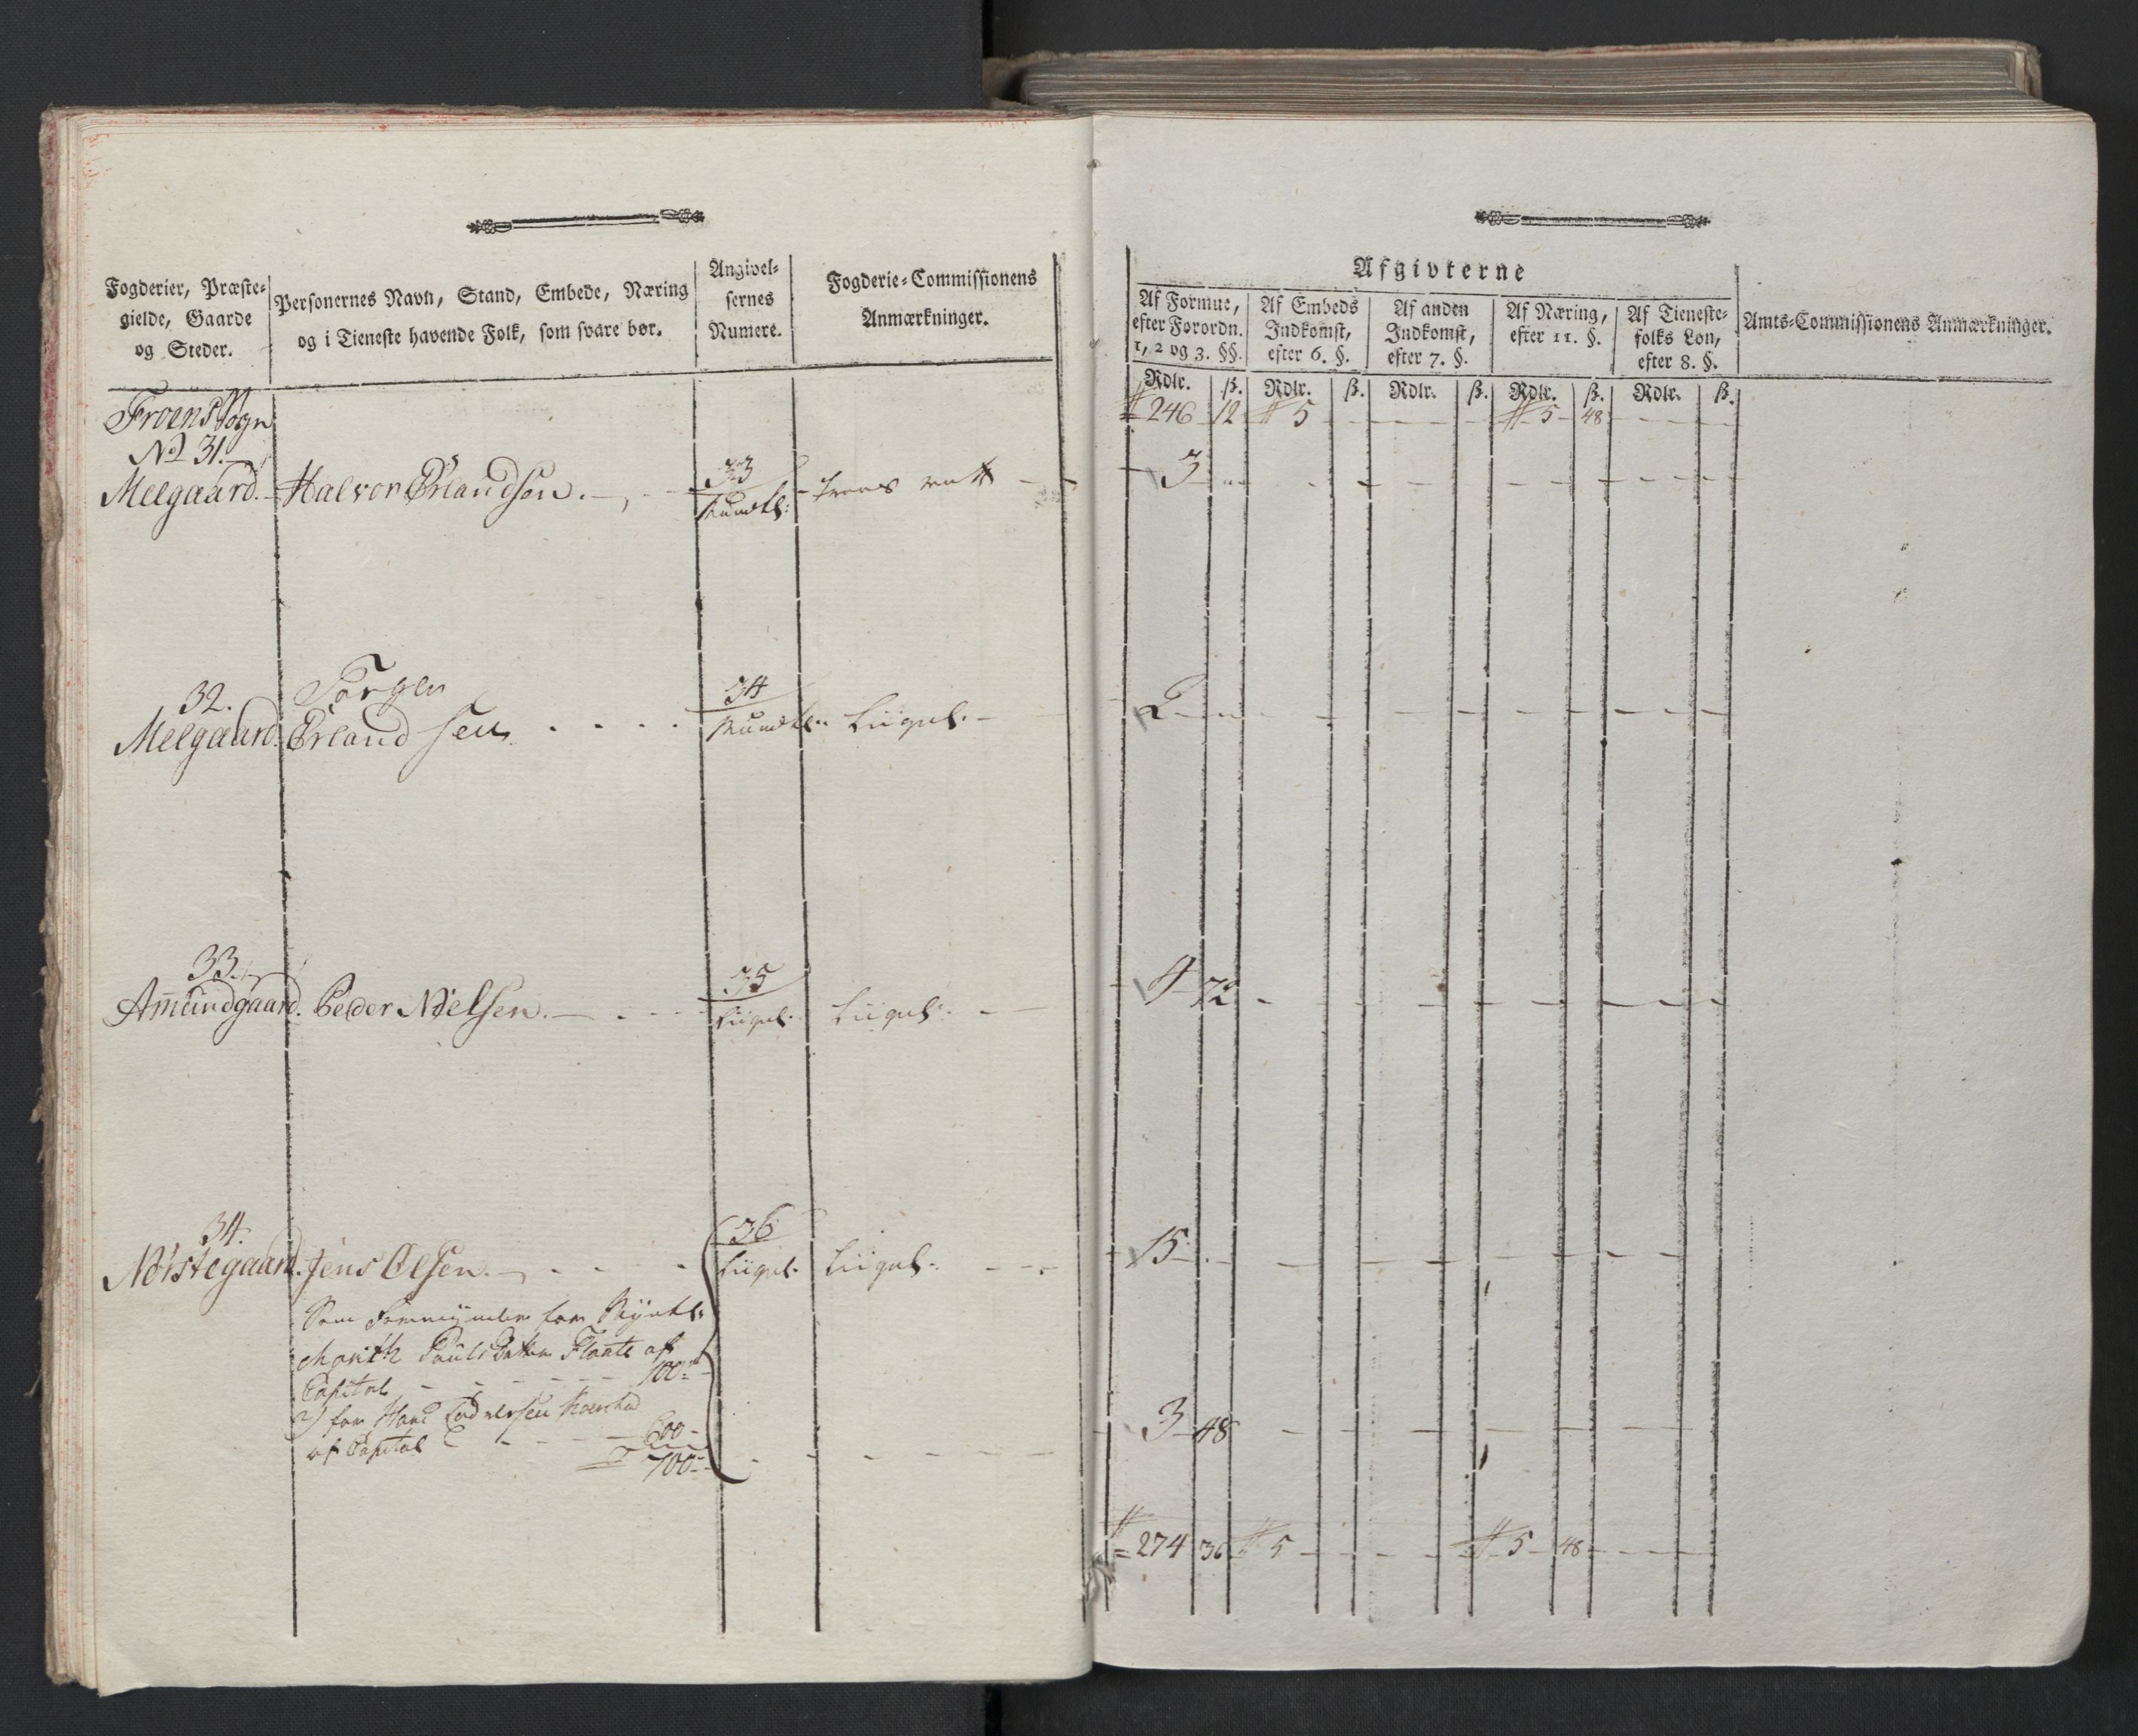 Fogderier, Præste-
gielde, Gaarde
og Steder.
Personernes Navn, Stand, Embede, Næring
og i Tieneste havende Folk, som svare bør.
Angivel-
sernes
Numere.
Fogderie-Commissionens
Anmærkninger.
Froens Sogn
No 31.
Melgaard. Halvor Erlandsen. 33
Mundtl:
32. Torgер 34
Melgaard. Erlandsen Mundtl. Liigel.
33. 35
Amundgaard. Peder Nielsen. Liigel. Liigel.
34. 36
Nørstegaard. Jens Olsen. Liigel. Liigel.
Som Formynder for
Marith Pauls Datter af
Capital 100
2) for Hans
af Capital 600
700
Afgivterne
Af Formue,
efter Forordn.
1, 2 og 3. §§.
Af Embeds
Indkomst,
efter 6. §.
Af anden
Indkomst,
efter 7. §.
Af Næring,
efter 11. §.
Af Tieneste-
folks Løn,
efter 8. §.
Amts-Commissionens Anmærkninger.
Rdlr. ß. Rdlr. ß. Rdlr. ß. Rdlr. ß. Rdlr. ß.
246 12 5 5 48
3
2
4 72
15
3 48
274 36 5 5 48